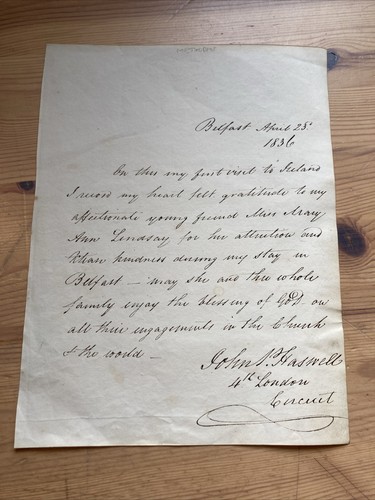 Belfast April 23d
1836
On this my first visit to Ireland
I record my heart felt gratitude to my
affectionate young friend Miss Mary
Ann Lindsay for her attention and
kindness during my stay in
Belfast – may she and the whole
family enjoy the blessing of God on
all their engagements in the Church
& the world –
John P. Haswell
4th London
Circuit